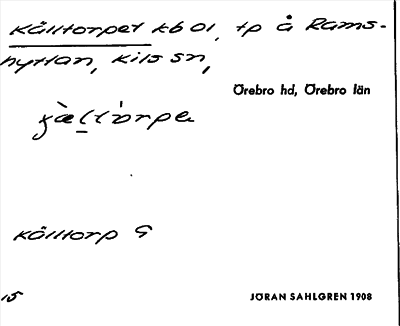 Källtorpet kb 01, tp å Rams-
hyttan, Kils sn,
Örebro hd, Örebro län
Källtorp G
15
JÖRAN SAHLGREN 1908